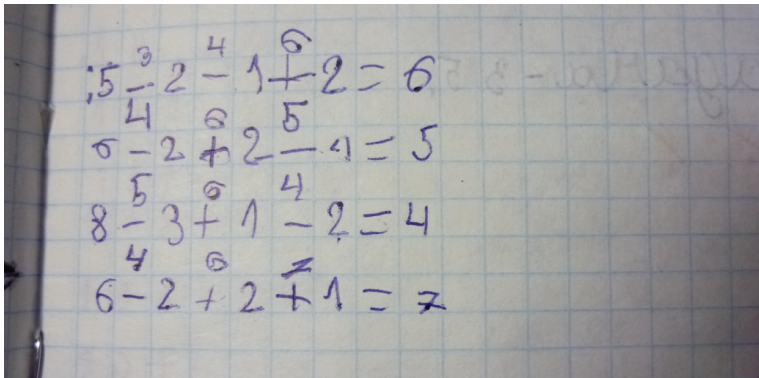 3 4 6
;5 - 2 - 1 + 2 = 6
4 6 5
6 - 2 + 2 - 1 = 5
5 6 4
8 - 3 + 1 - 2 = 4
4 6 7
6 - 2 + 2 + 1 = 7